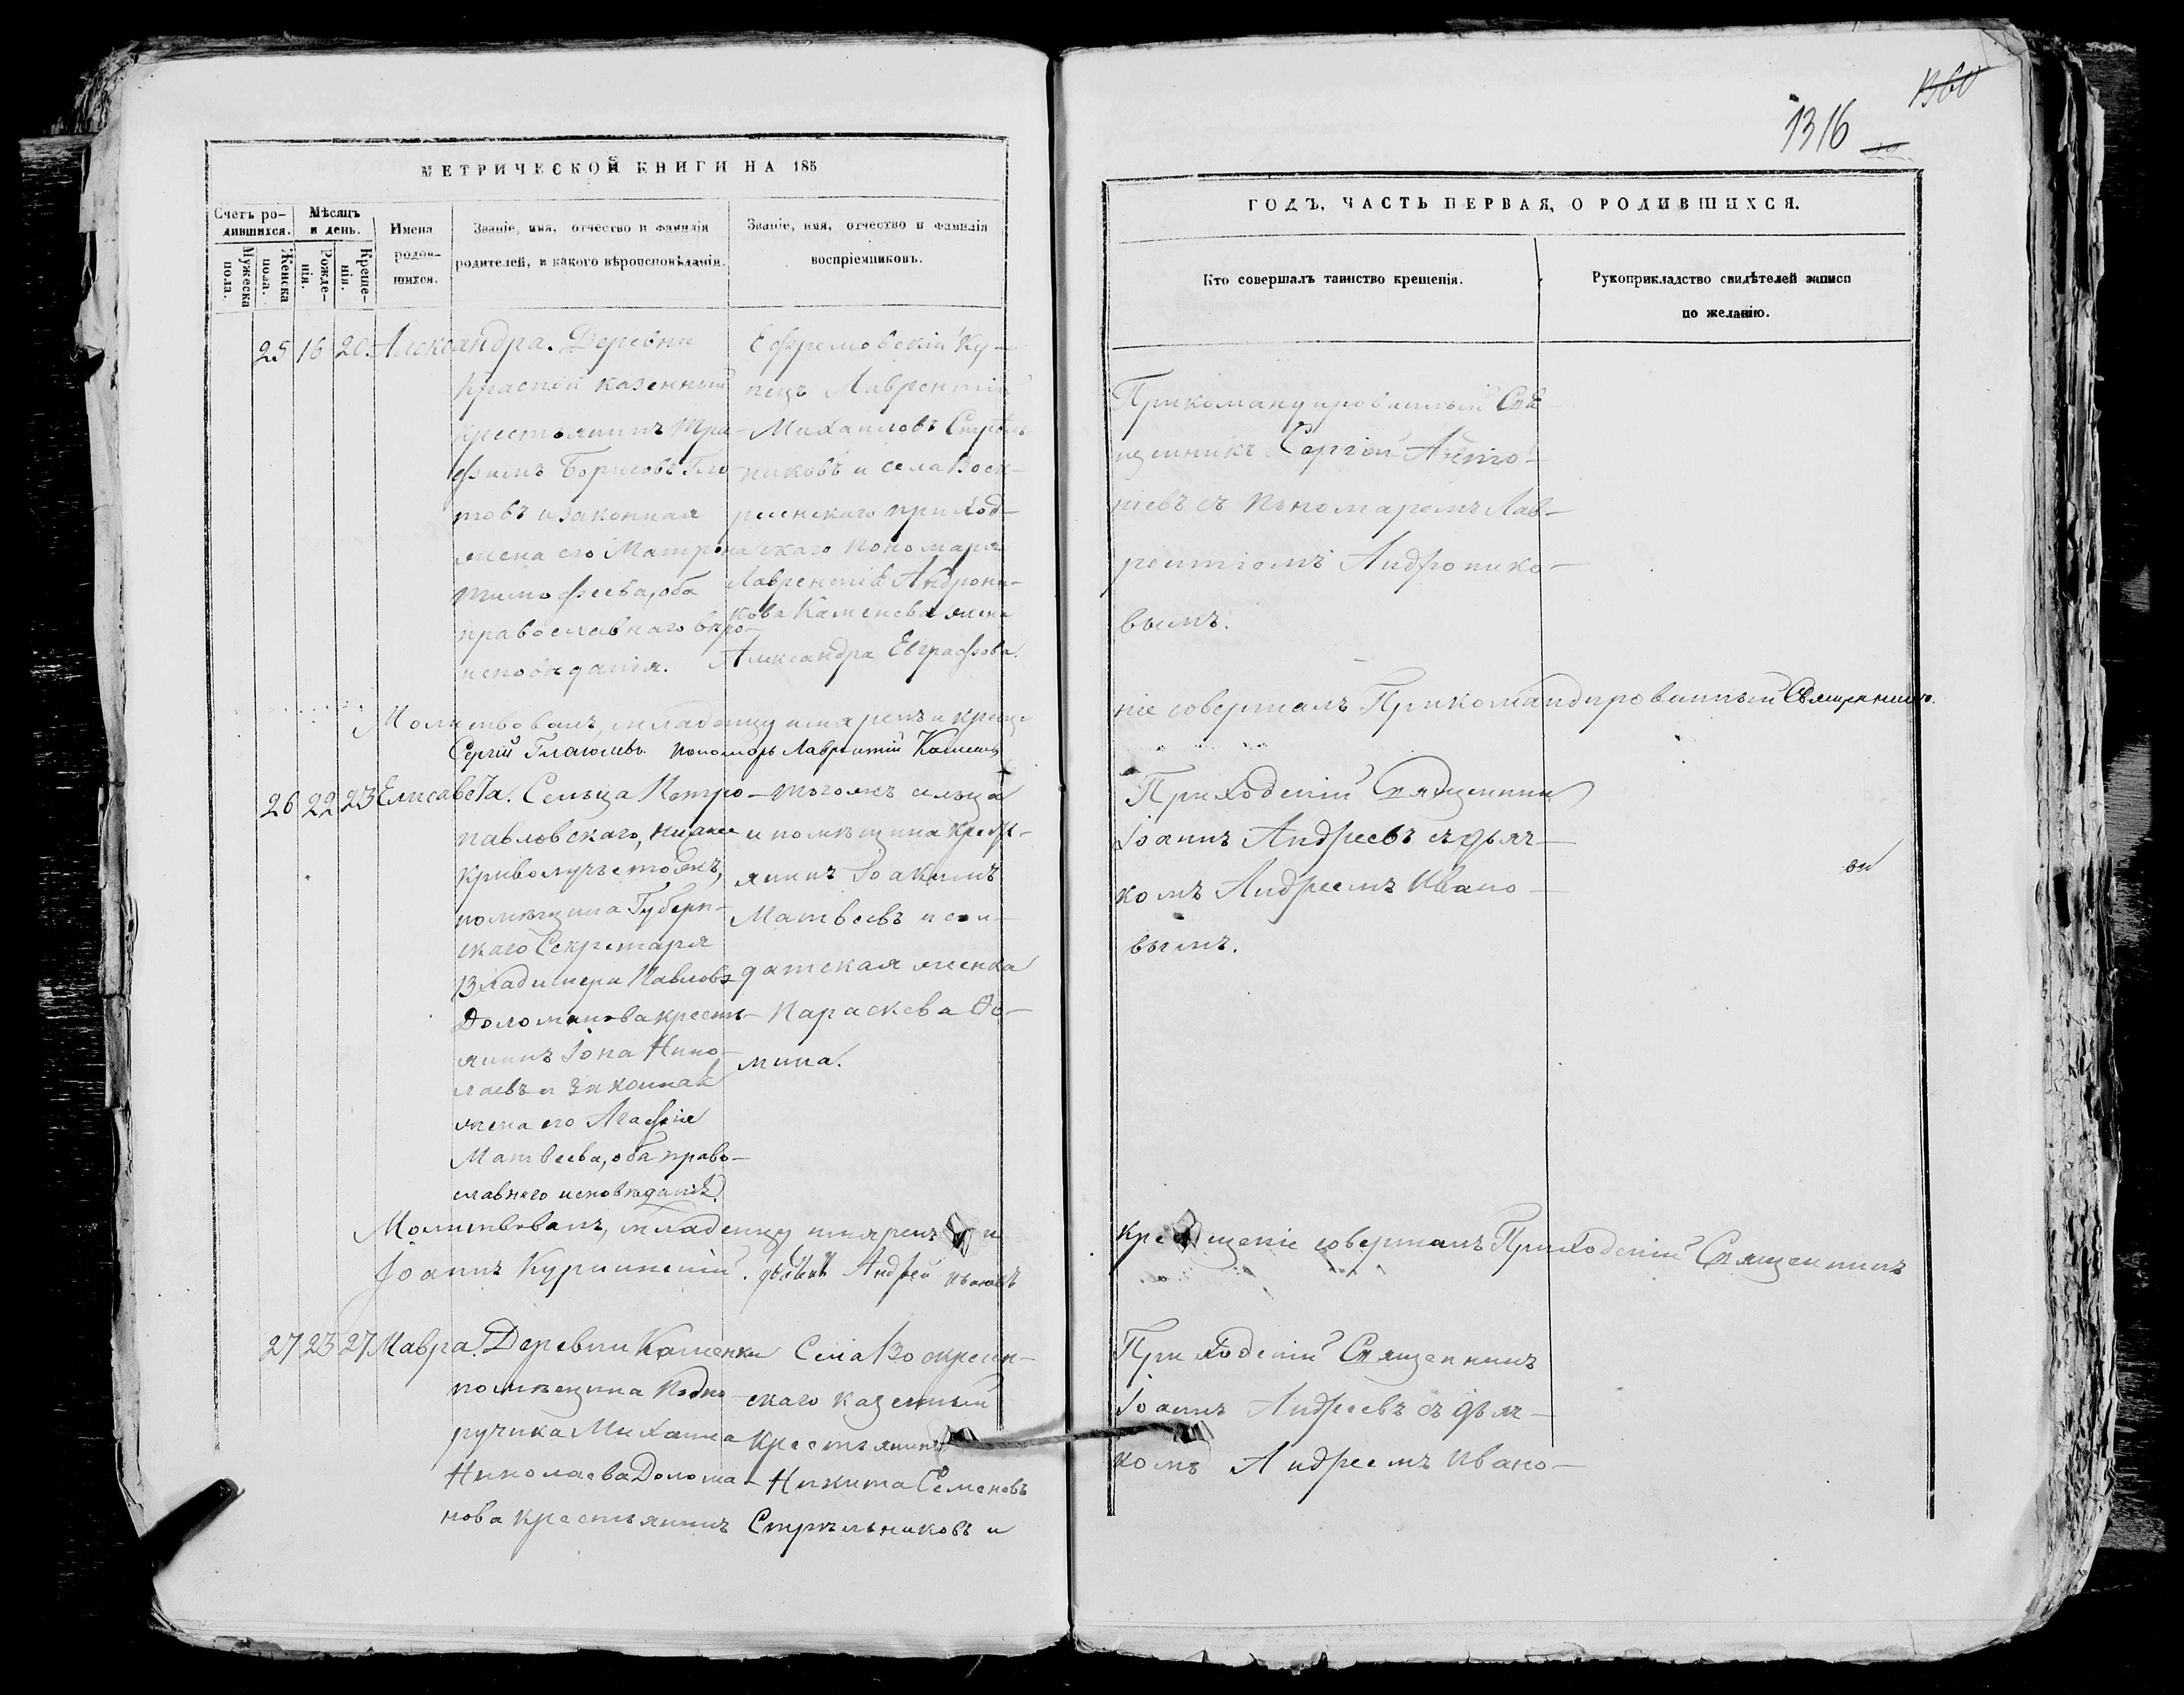 МЕТРИЧЕСКОЙ КНИГИ НА 185
Счетъ ро-
дившихся.
Мужеска
пола.
Женска
пола.
Мѣсяцъ
и день.
Рожде-
нія.
Креще-
нія.
Имена
родив-
шихся.
Званіе, имя, отчество и фамилія
родителей, и какого вѣроисповѣданія.
Званіе, имя, отчество и фамилія
воспріемниковъ.
25 16 20. Александра. Деревни
Красной казенный
крестьянинъ Тро-
фимъ Борисовъ Гло-
товъ и законная
жена его Матрона
Тимофеева, оба
православнаго вѣро-
исповѣданія.
Ефремовскій Ку-
пецъ Лаврентій
Михаиловъ Стрѣль-
никовъ и села Воск-
ресенскаго приход-
скаго пономаря
Лаврентія Андрони-
кова Каменева жена
Александра Евграфова.
Молитвовалъ, младенцу имя рекъ и креще
Сергій Глаголевъ. Пономарь Лаврентій Каменевъ
26 22 23 Елисавета. Сельца Петро-
павловскаго,
помѣщика Губерн-
скаго Секретаря
Владимера Павлова
Доломанова кресть-
янинъ Іона Нико-
лаевъ и законная
жена его Агафія
Матвеева, оба право-
славнаго исповѣданія.
тогожъ сельца
и помѣщика крест-
янинъ Іоакимъ
Матвеевъ и сол-
датская женка
Параскева Фо-
мина.
Молитвовалъ, младенцу имя рекъ и
Іоаннъ Куркинскій. дьячекъ Андрей Ивановъ
27 23 27 Мавра. Деревни Каменки
помѣщика Подпо-
ручика Михаила
Николаева Долома-
нова крестьянинъ
Села Воскресен-
скаго казенный
Крестьянинъ
Никита Семеновъ
Стрѣльниковъ и
1360
1316
ГОДЪ, ЧАСТЬ ПЕРВАЯ, О РОДИВШИХСЯ.
Кто совершалъ таинство крещенія.
Рукоприкладство свидѣтелей записи
по желанію.
Прикомандированный Свя-
щенникъ Сергій Анто-
ніевъ съ пономаремъ Лав-
рентіемъ Андронико-
вымъ.
ніе совершалъ Прикомандированный Священникъ.
Приходскій Священникъ
Іоаннъ Андреевъ съ дьяч-
комъ Андреемъ Ивано-
вымъ.
крещеніе совершалъ Приходскій Священникъ
Приходскій Священникъ
Іоаннъ Андреевъ съ дьяч-
комъ Андреемъ Ивано-